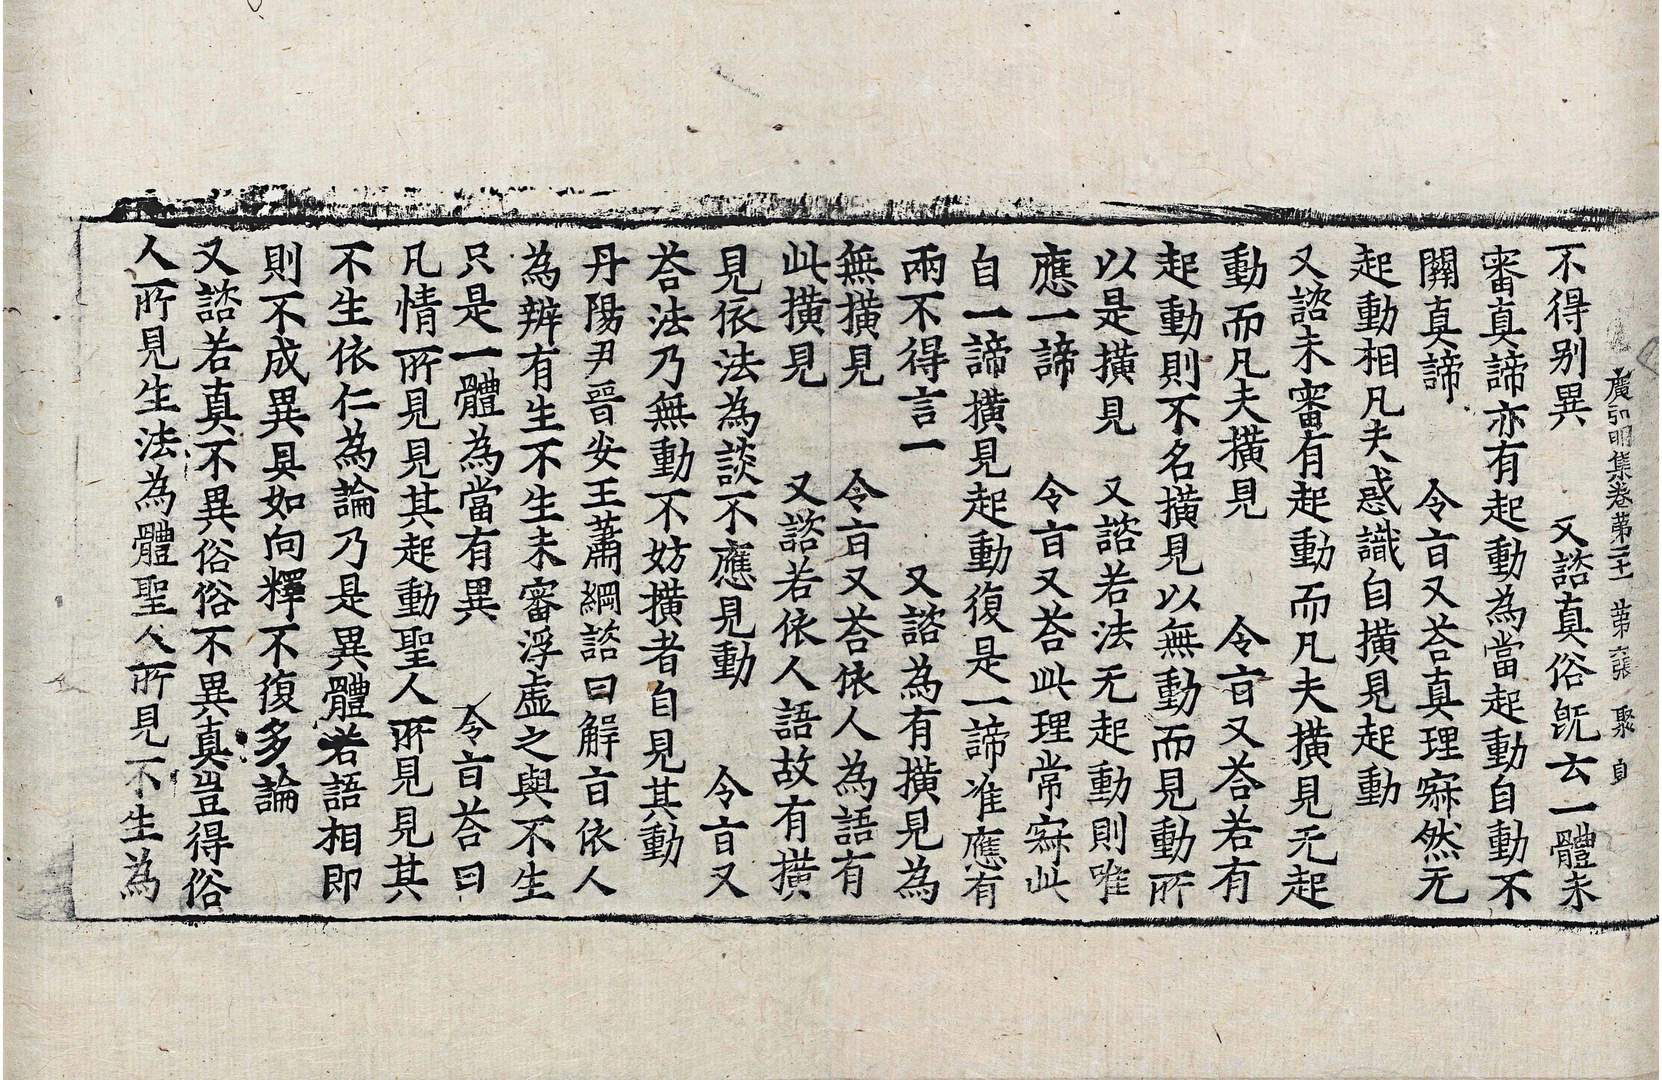 廣弘明集卷第二十一　第六張　聚自
不得别異　又諮真俗旣云一體未
審真諦亦有起動為當起動自動不
關真諦　令旨又荅真理寂然无
起動相凡夫惑識自撗見起動
又諮未審有起動而凡夫撗見无起
動而凡夫撗見　令旨又荅若有
起動則不名撗見以無動而見動所
以是撗見　又諮若法无起動則唯
應一諦　令旨又荅此理常寂此
自一諦撗見起動復是一諦准應有
兩不得言一　又諮為有撗見為
無撗見　令旨又荅依人為語有
此撗見　又諮若依人語故有撗
見依法為談不應見動　令旨又
荅法乃無動不妨撗者自見其動
丹陽尹晉安王蕭綱諮曰解旨依人
為辨有生不生未審浮虛之與不生
只是一體為當有異　令旨荅曰
凡情所見見其起動聖人所見見其
不生依仁為論乃是異體若語相即
則不成異具如向釋不復多論
又諮若真不異俗俗不異真豈得俗
人所見生法為體聖人所見不生為